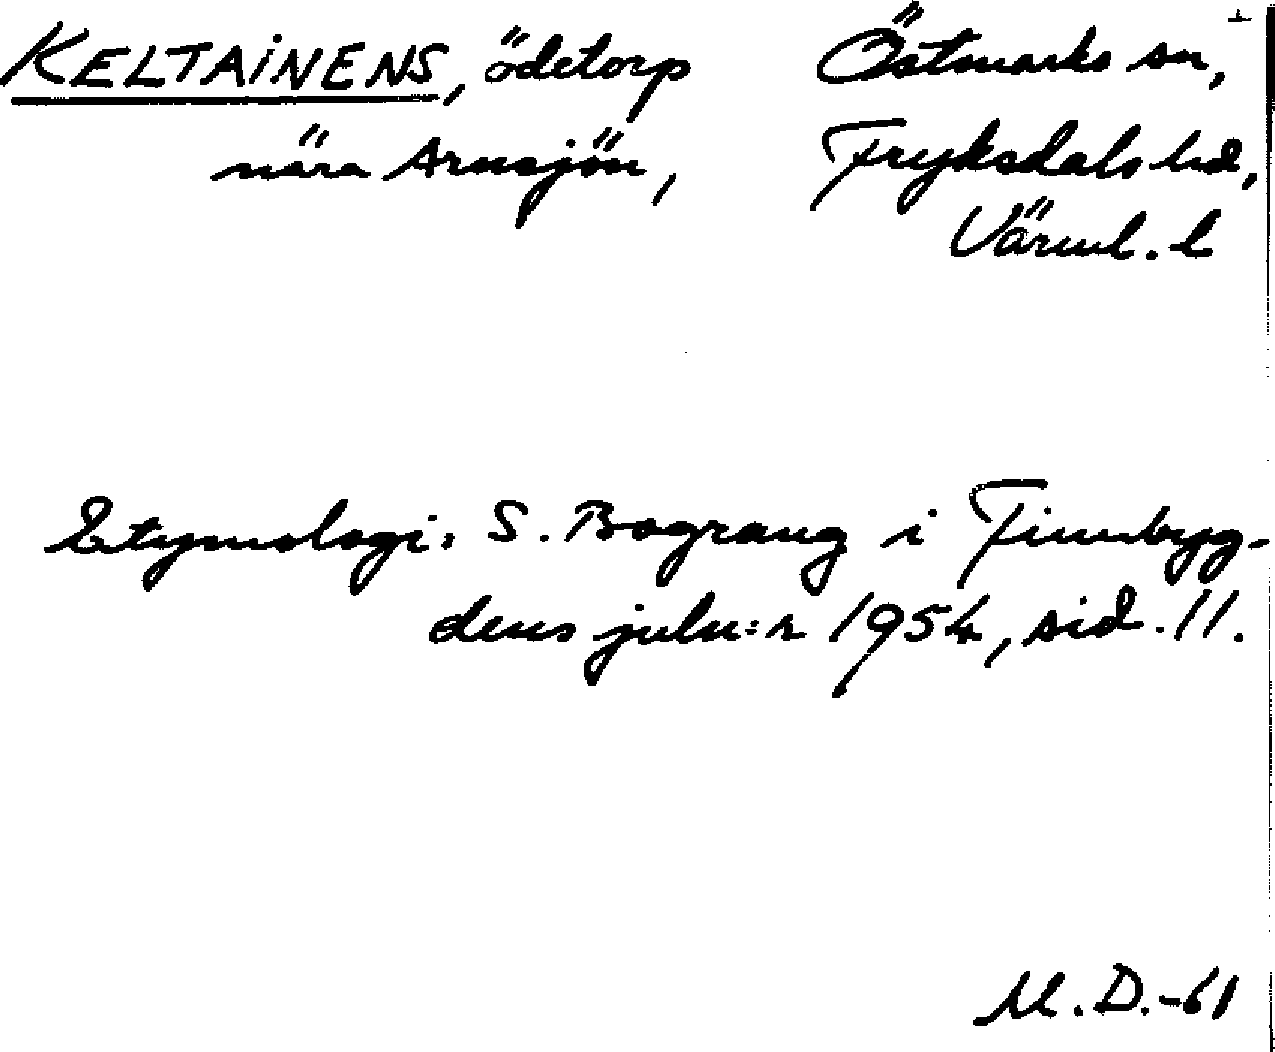 KELTAINENS, ödetorp Östmarks sn,
nära Arnsjön, Fryksdals hd,
Värml. l
Etymologi: S. Bograng i Finnbyg-
dens juln:r 1954, sid. 11.
M.D.-61